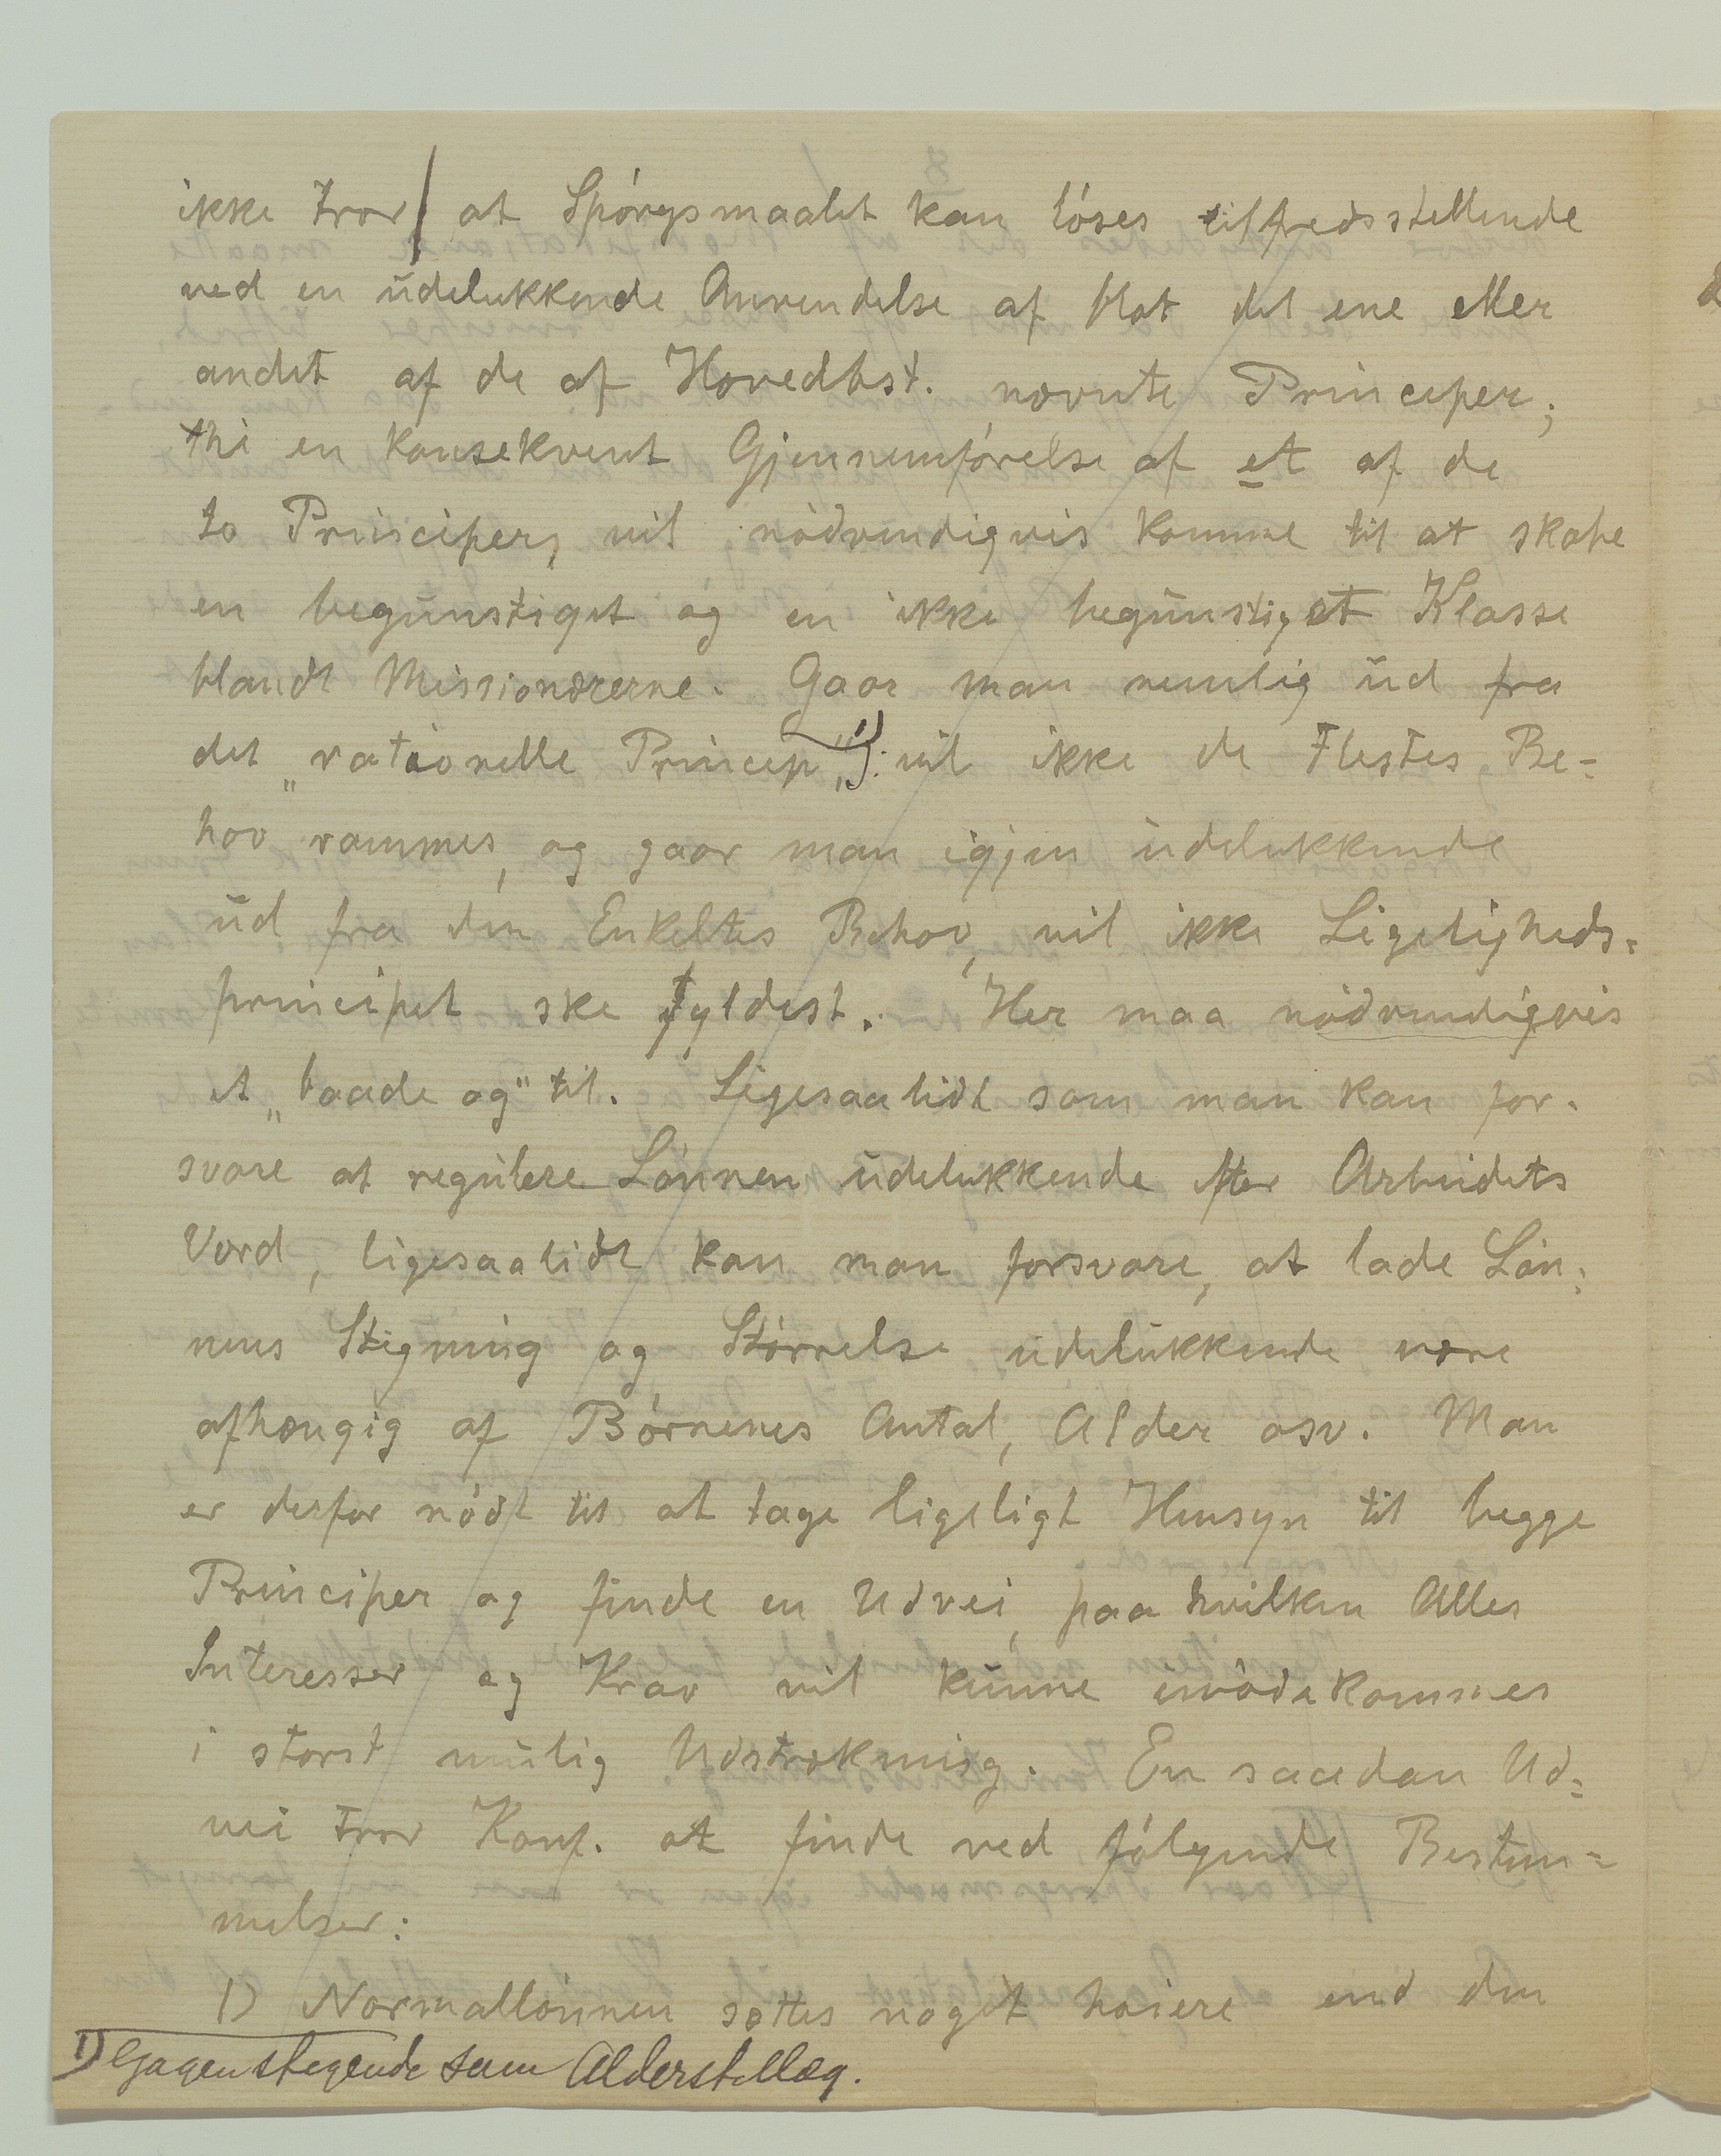 ikke tror, at Spórgsmaalet kan lóses tilfredsstillende
ved en udelukkende Anvendelse af blot det ene eller
andet af de af Hovedbst. nævnte Principer;
thi en konsekvent Gjennemfórelse af et af de
to Principer, vil nódvendigvis komme til at skabe
en begunstiget og en ikke begunstiget Klasse
blandt Missionærerne. Gaar man nemlig ud fra
det „rationelle Princip“ 1) vil ikke de Flestes Be-
hov rammes, og gaar man igjen udelukkende
ud fra den Enkeltes Behov, vil ikke Ligeligheds-
principet ske Fyldest. Her maa nódvendigvis
et „baade og“ til. Ligesaalidt som man kan for-
svare at regulere Lónnen udelukkende efter Arbeidets
Værd, ligesaalidt kan man forsvare, at lade Lón-
nens Stigning og Stórrelse udelukkende være
afhængig af Bórnenes Antal, Alder osv. Man
er derfor nódt til at tage ligeligt Hensyn til begge
Principer og finde en Udvei, paa hvilken Alles
Interesser og Krav vil kunne imódekommes
i størst mulig Udstrækning. En saadan Ud-
vei tror Konf. at finde ved fólgende Bestem-
melser:
1) Normallónnen sættes noget høiere end den
1) Gagen stegende som Alderstillæg.